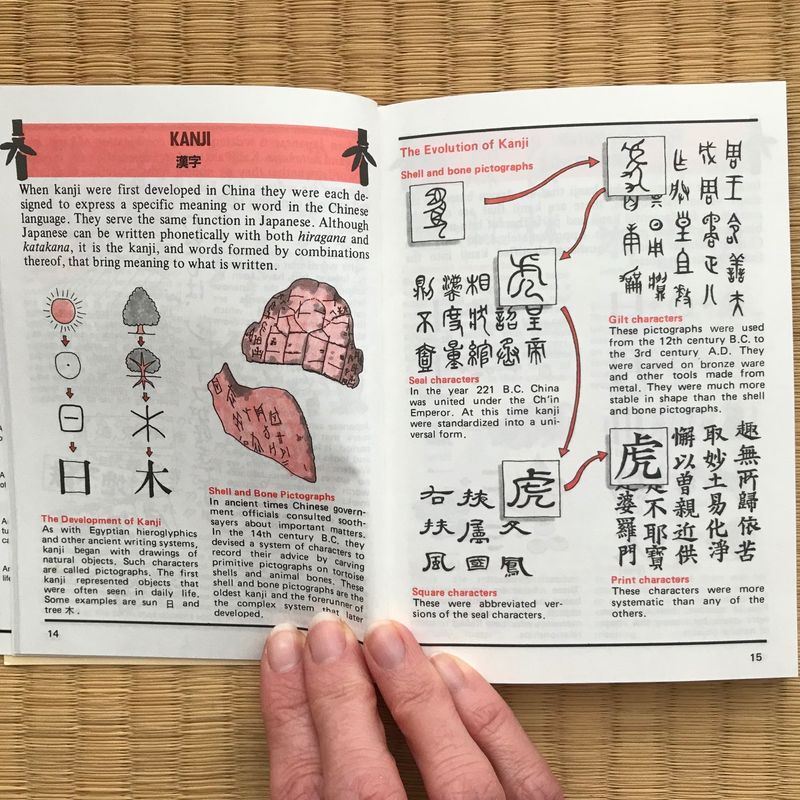 KANJI
漢字
When kanji were first developed in China they were each de-
signed to express a specific meaning or word in the Chinese
language. They serve the same function in Japanese. Although
Japanese can be written phonetically with both hiragana and
katakana, it is the kanji, and words formed by combinations
thereof, that bring meaning to what is written.
日 木
The Development of Kanji
As with Egyptian hieroglyphics
and other ancient writing systems,
kanji began with drawings of
natural objects. Such characters
are called pictographs. The first
kanji represented objects that
were often seen in daily life.
Some examples are sun 日 and
tree 木.
Shell and Bone Pictographs
In ancient times Chinese govern-
ment officials consulted sooth-
sayers about important matters.
In the 14th century B.C. they
devised a system of characters to
record their advice by carving
primitive pictographs on tortoise
shells and animal bones. These
shell and bone pictographs are the
oldest kanji and the forerunner of
the complex system that later
developed.
14
The Evolution of Kanji
Shell and bone pictographs
Gilt characters
These pictographs were used
from the 12th century B.C. to
the 3rd century A.D. They
were carved on bronze ware
and other tools made from
metal. They were much more
stable in shape than the shell
and bone pictographs.
Seal characters
In the year 221 B.C. China
was united under the Ch'in
Emperor. At this time kanji
were standardized into a uni-
versal form.
虎
Square characters
These were abbreviated ver-
sions of the seal characters.
虎
趣無所歸依苦
取妙土易化淨
懈以曾親近供
是不耶寶
婆羅門
Print characters
These characters were more
systematic than any of the
others.
15